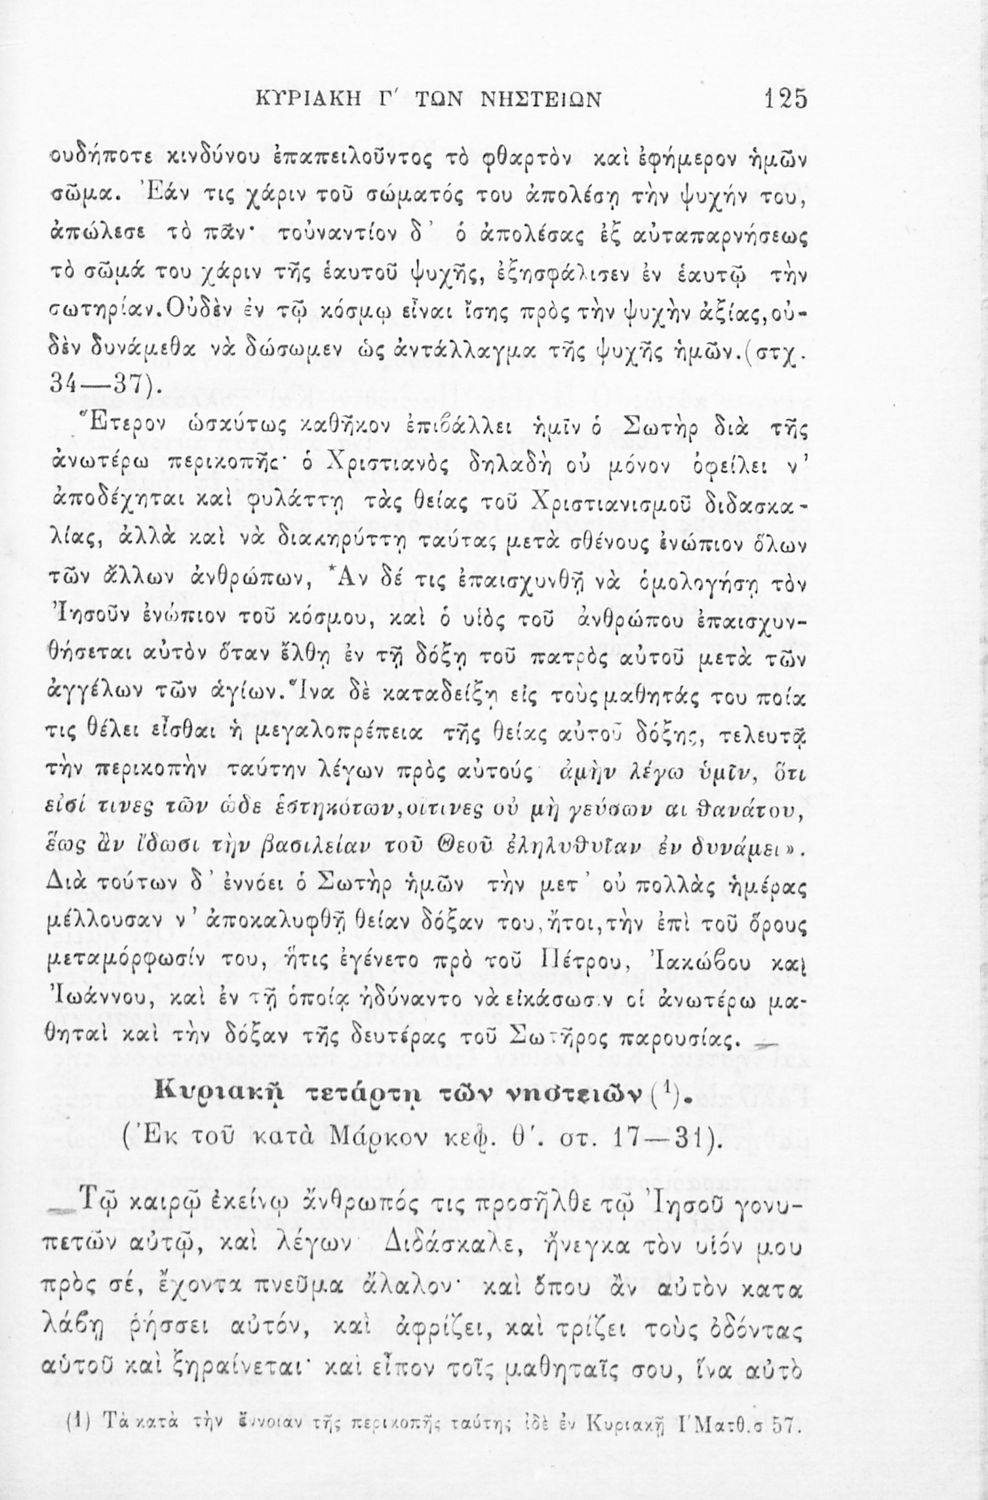 ΚΥΡΙΑΚΗ Γ΄ ΤΩΝ ΝΗΣΤΕΙΩΝ 125
ουδήποτε κινδύνου ἐπαπειλοῦντος τὸ φθαρτὸν καὶ ἐφήμερον ἡμῶν
σῶμα. Ἐάν τις χάριν τοῦ σώματός του ἀπολέσῃ τὴν ψυχήν του,
ἀπώλεσε τὸ πᾶν· τοὐναντίον δ᾽ ὁ ἀπολέσας ἐξ αὐταπαρνήσεως
τὸ σῶμά του χάριν τῆς ἑαυτοῦ ψυχῆς, ἐξησφάλισεν ἐν ἑαυτῷ τὴν
σωτηρίαν.Οὐδὲν ἐν τῷ κόσμῳ εἶναι ἴσης πρὸς τὴν ψυχὴν ἀξίας,οὐ-
δὲν δυνάμεθα νὰ δώσωμεν ὡς ἀντάλλαγμα τῆς ψυχῆς ἡμῶν.(στχ.
34—37).
Ἕτερον ὡσαύτως καθῆκον ἐπιβάλλει ἡμῖν ὁ Σωτὴρ διὰ τῆς
ἀνωτέρω περικοπῆς· ὁ Χριστιανὸς δηλαδὴ οὐ μόνον ὀφείλει ν᾽
ἀποδέχηται καὶ φυλάττῃ τὰς θείας τοῦ Χριστιανισμοῦ διδασκα-
λίας, ἀλλὰ καὶ νὰ διακηρύττῃ ταύτας μετὰ σθένους ἐνώπιον ὅλων
τῶν ἄλλων ἀνθρώπων, Ἂν δέ τις ἐπαισχυνθῇ νὰ ὁμολογήσῃ τὸν
Ἰησοῦν ἐνώπιον τοῦ κόσμου, καὶ ὁ υἱὸς τοῦ ἀνθρώπου ἐπαισχυν-
θήσεται αὐτὸν ὅταν ἔλθῃ ἐν τῇ δόξῃ τοῦ πατρὸς αὐτοῦ μετὰ τῶν
ἀγγέλων τῶν ἁγίων.Ἵνα δὲ καταδείξῃ εἰς τοὺς μαθητάς του ποία
τις θέλει εἶσθαι ἡ μεγαλοπρέπεια τῆς θείας αὐτοῦ δόξης, τελευτᾷ
τὴν περικοπὴν ταύτην λέγων πρὸς αὐτούς ἀμὴν λέγω ὑμῖν, ὅτι
εἰσί τινες τῶν ὧδε ἑστηκότων,οἵτινες οὐ μὴ γεύσων αι θανάτου,
ἕως ἂν ἴδωσι τὴν βασιλείαν τοῦ Θεοῦ ἐληλυθυῖαν ἐν δυνάμει».
Διὰ τούτων δ᾽ ἐννόει ὁ Σωτὴρ ἡμῶν τὴν μετ᾽ οὐ πολλὰς ἡμέρας
μέλλουσαν ν᾽ ἀποκαλυφθῇ θείαν δόξαν του,ἤτοι,τὴν ἐπὶ τοῦ ὄρους
μεταμόρφωσίν του, ἥτις ἐγένετο πρὸ τοῦ Πέτρου, Ἰακώβου καὶ
Ἰωάννου, καὶ ἐν τῇ ὁποίᾳ ἠδύναντο νὰ εἰκάσωσιν οἱ ἀνωτέρω μα-
θηταὶ καὶ τὴν δόξαν τῆς δευτέρας τοῦ Σωτῆρος παρουσίας.
Κυριακῇ τετάρτῃ τῶν νηστειῶν (¹).
(Ἐκ τοῦ κατὰ Μάρκον κεφ. θ΄. στ. 17—31).
Τῷ καιρῷ ἐκείνῳ ἄνθρωπός τις προσῆλθε τῷ Ἰησοῦ γονυ-
πετῶν αὐτῷ, καὶ λέγων Διδάσκαλε, ἤνεγκα τὸν υἱόν μου
πρὸς σέ, ἔχοντα πνεῦμα ἄλαλον· καὶ ὅπου ἂν αὐτὸν κατα
λάβῃ ῥήσσει αὐτόν, καὶ ἀφρίζει, καὶ τρίζει τοὺς ὀδόντας
αὑτοῦ καὶ ξηραίνεται· καὶ εἶπον τοῖς μαθηταῖς σου, ἵνα αὐτὸ
(1) Τὰ κατὰ τὴν ἔννοιαν τῆς περικοπῆς ταύτης ἰδὲ ἐν Κυριακῇ Ι΄ Ματθ.σ 57.